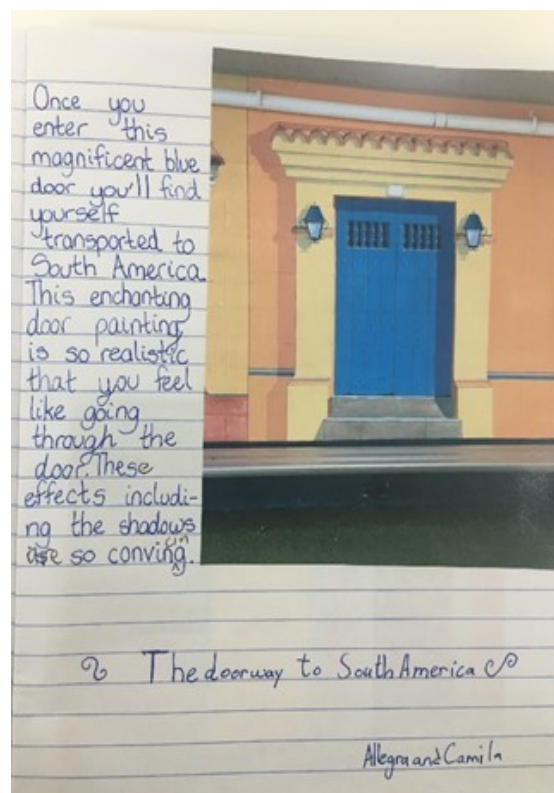 Once you
enter this
magnificent blue
door you'll find
yourself
transported to
South America.
This enchanting
door painting
is so realistic
that you feel
like going
through the
door. These
effects includi-
ng the shadows
are so convincing.
The doorway to South America
Allegra and Camila